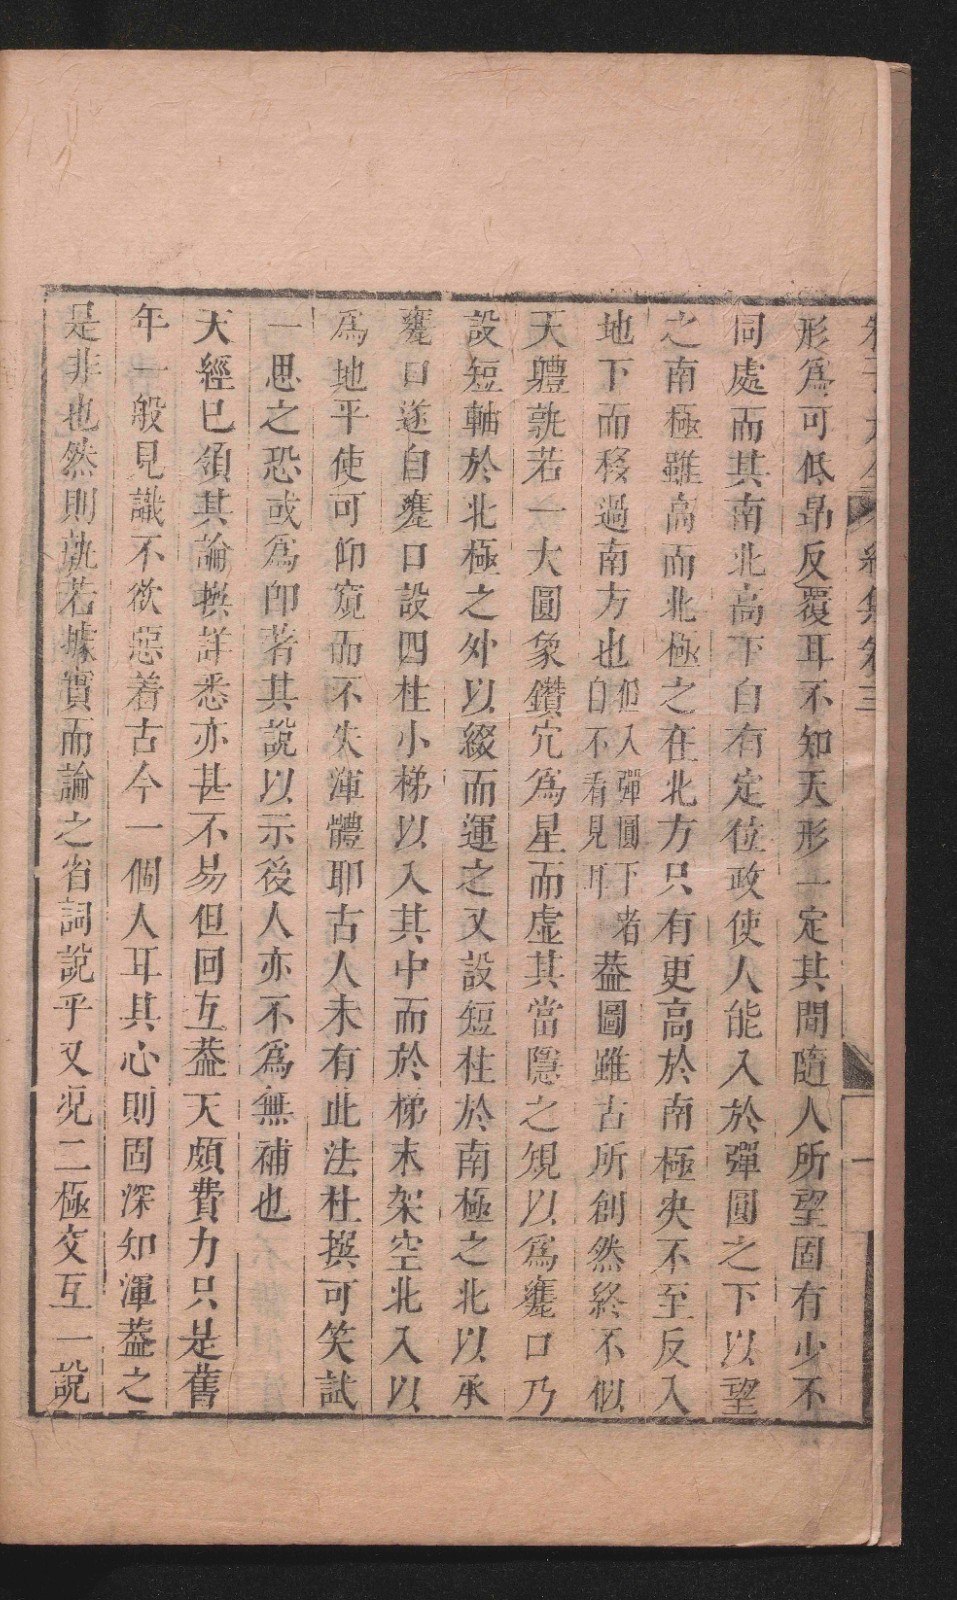 續集卷三
形爲可低昂反覆耳不知天形一定其間隨人所望固有少不
同處而其南北高下自有定位政使人能入於彈圓之下以望
之南極雖高而北極之在北方只有更高於南極决不至反入
地下而移過南方也但入彈圓下者自不看見耳葢圖雖古所創然終不似
天體孰若一大圓象鑽穴爲星而虛其當隱之規以爲甕口乃
設短軸於北極之外以綴而運之又設短柱於南極之北以承
甕口遂自甕口設四柱小梯以入其中而於梯末架空北入以
爲地平使可仰窺而不失渾體耶古人未有此法杜撰可笑試
一思之恐或爲卽著其說以示後人亦不爲無補也
天經已領其論撰詳悉亦甚不易但回互葢天頗費力只是舊
年一般見識不欲惡着古今一個人耳其心則固深知渾葢之
是非也然則孰若據實而論之省詞說乎又况二極交互一說